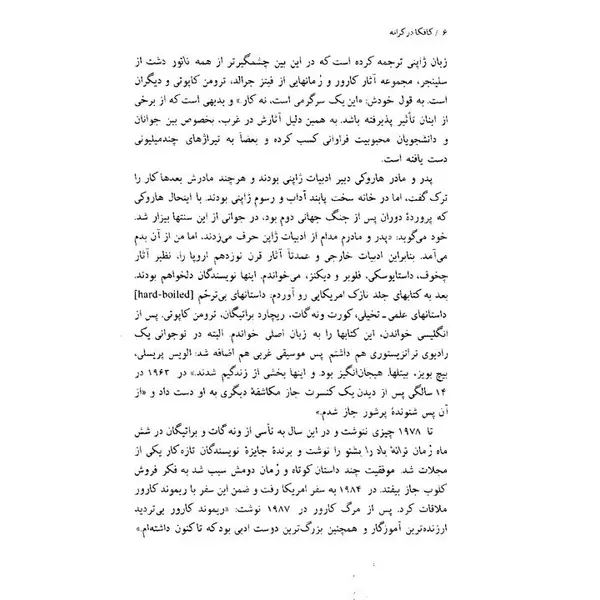 ۶ / کافکا در کرانه
زبان ژاپنی ترجمه کرده است که در این بین چشمگیرتر از همه ناتور دشت از
سلینجر، مجموعه آثار کارور و رمانهایی از فیتز جرالد، ترومن کاپوتی و دیگران
است. به قول خودش: «این یک سرگرمی است، نه کار.» و بدیهی است که از برخی
از اینان تأثیر پذیرفته باشد. به همین دلیل آثارش در غرب، بخصوص بین جوانان
و دانشجویان محبوبیت فراوانی کسب کرده و بعضاً به تیراژهای چندمیلیونی
دست یافته است.
پدر و مادر هاروکی دبیر ادبیات ژاپنی بودند و هرچند مادرش بعدها کار را
ترک گفت، اما در خانه سخت پابند آداب و رسوم ژاپنی بودند. با اینحال هاروکی
که پروردهٔ دوران پس از جنگ جهانی دوم بود، در جوانی از این سنتها بیزار شد.
خود می‌گوید: «پدر و مادرم مدام از ادبیات ژاپن حرف می‌زدند، اما من از آن بدم
می‌آمد. بنابراین ادبیات خارجی و عمدتاً آثار قرن نوزدهم اروپا را، نظیر آثار
چخوف، داستایوسکی، فلوبر و دیکنز، می‌خواندم. اینها نویسندگان دلخواهم بودند.
بعد به کتابهای جلد نازک امریکایی رو آوردم: داستانهای بی‌ترحّم [hard-boiled]
داستانهای علمی ـ تخیلی، کورت ونه گات، ریچارد براتیگان، ترومن کاپوتی. پس از
انگلیسی خواندن، این کتابها را به زبان اصلی خواندم. البته در نوجوانی یک
رادیوی ترانزیستوری هم داشتم پس موسیقی غربی هم اضافه شد: الویس پریسلی،
بیچ بویز، بیتلها. هیجان‌انگیز بود. و اینها بخشی از زندگیم شدند.» در ۱۹۶۳ در
۱۴ سالگی پس از دیدن یک کنسرت جاز مکاشفهٔ دیگری به او دست داد و «از
آن پس شنوندهٔ پرشور جاز شدم.»
تا ۱۹۷۸ چیزی ننوشت و در این سال به تأسی از ونه گات و براتیگان در شش
ماه رُمان ترانهٔ باد را بشنو را نوشت و برندهٔ جایزهٔ نویسندگان تازه کار یکی از
مجلات شد. موفقیت چند داستان کوتاه و رُمان دومش سبب شد به فکر فروش
کلوب جاز بیفتد. در ۱۹۸۴ به سفر امریکا رفت و ضمن این سفر با ریموند کارور
ملاقات کرد. پس از مرگ کارور در ۱۹۸۷ نوشت: «ریموند کارور بی‌تردید
ارزنده‌ترین آموزگار و همچنین بزرگ‌ترین دوست ادبی بود که تا کنون داشته‌ام.»